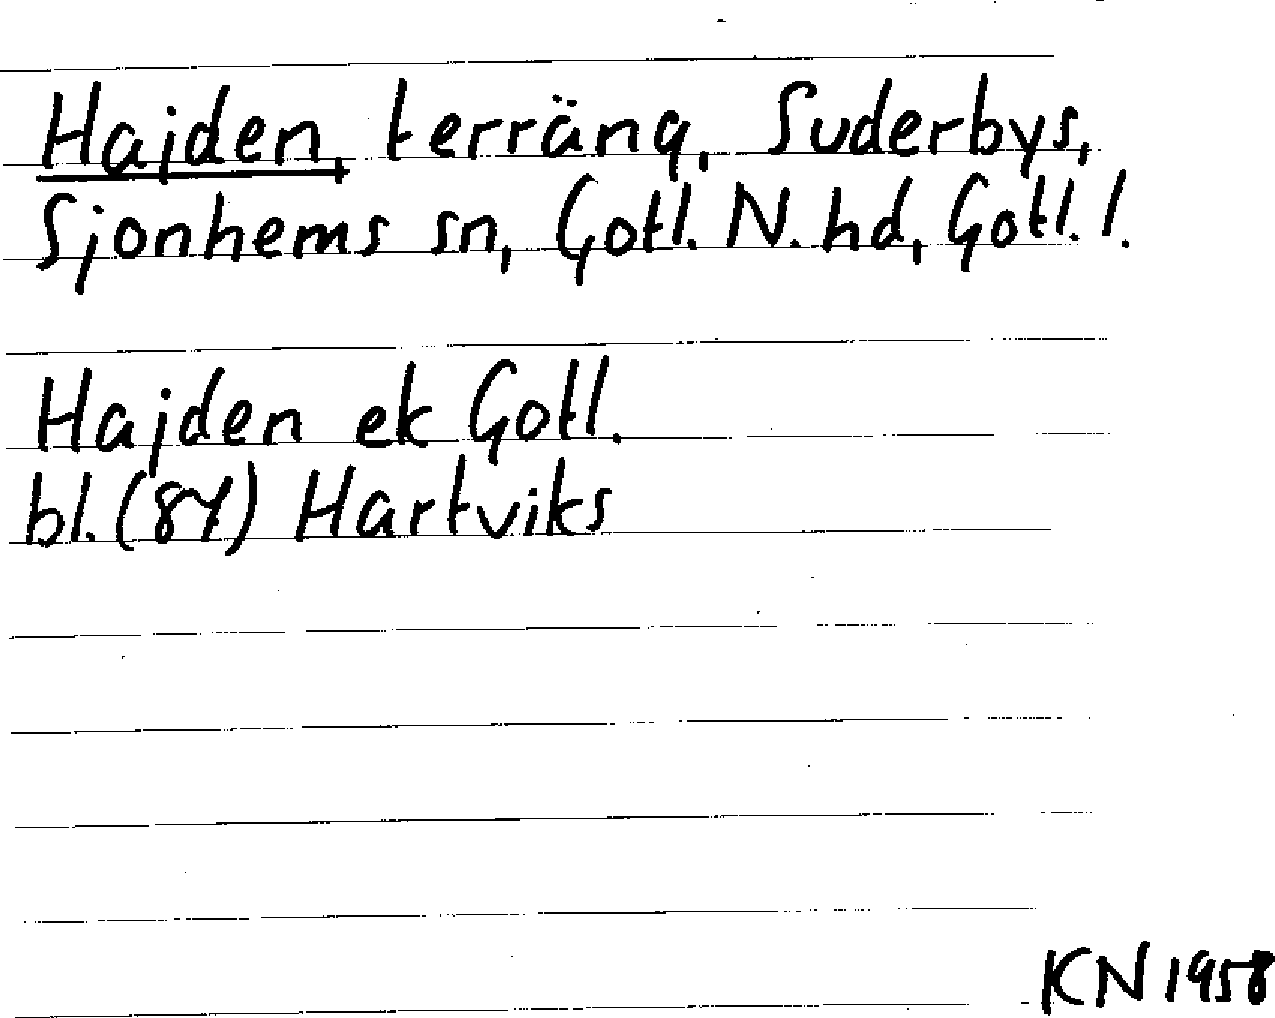 Hajden, terräng, Suderbys,
Sjonhems sn, Gotl. N. hd, Gotl. l.
Hajden ek Gotl.
bl. (84) Hartviks
KN 1958